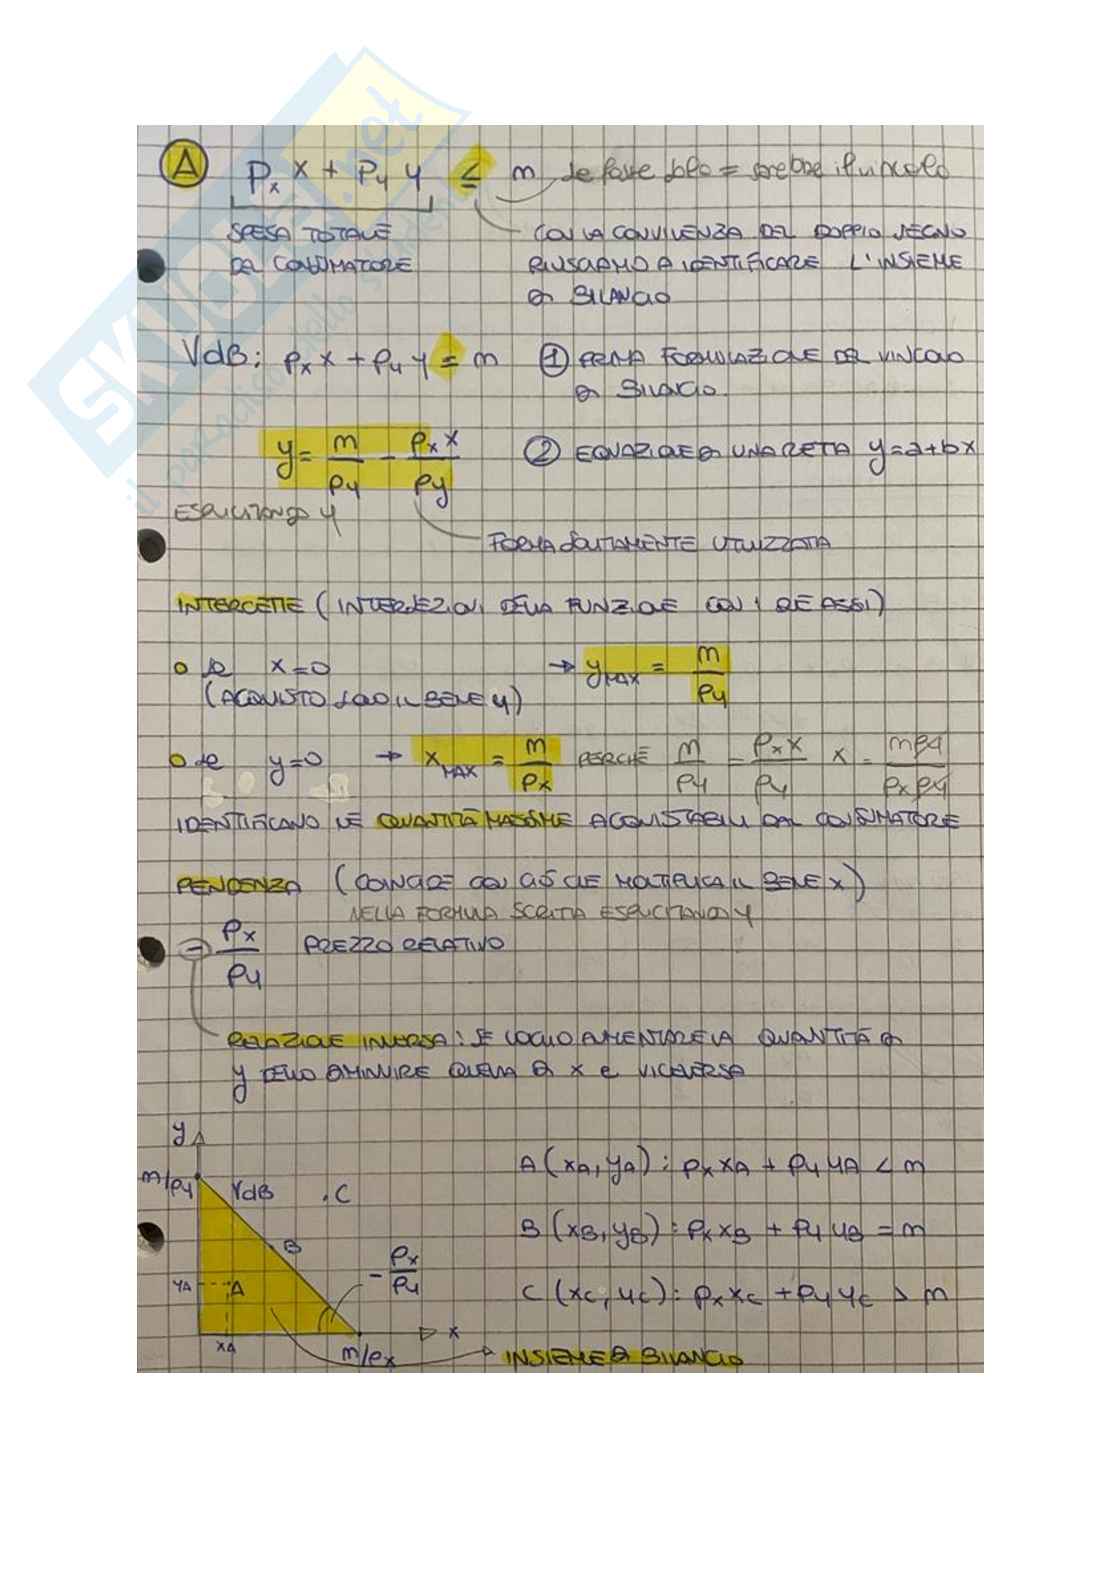 A  Px x + Py y ≤ m  se fosse solo = sarebbe il vincolo
SPESA TOTALE
DEL CONSUMATORE
CON LA CONVIVENZA DEL DOPPIO SEGNO
RIUSCIAMO A IDENTIFICARE L'INSIEME
DI BILANCIO
VdB: Px x + Py y = m  ① PRIMA FORMULAZIONE DEL VINCOLO
DI BILANCIO.
y = m/Py - Px x/Py  ② EQUAZIONE DI UNA RETA y=a+bx
ESPLICITANDO y
FORMA SOLITAMENTE UTILIZZATA
INTERCETTE (INTERSEZIONI DELLA FUNZIONE CON I DUE ASSI)
o se x=0 → yMAX = m/Py
(ACQUISTO SOLO IL BENE y)
o se y=0 → xMAX = m/Px PERCHÉ m/Py = Px x/Py x = mPy/PxPy
IDENTIFICANO LE QUANTITÀ MASSIME ACQUISTABILI DAL CONSUMATORE
PENDENZA (COINCIDE CON CIÒ CHE MOLTIPLICA IL BENE x)
NELLA FORMULA SCRITTA ESPLICITANDO y
- Px/Py PREZZO RELATIVO
RELAZIONE INVERSA: SE VOGLIO AUMENTARE LA QUANTITÀ DI
y DEVO DIMINUIRE QUELLA DI x e VICEVERSA
y
A(xA, yA): Px xA + Py yA < m
m/Py VdB .C
B(xB, yB): Px xB + Py yB = m
B
-Px/Py
yA A
C(xC, yC): Px xC + Py yC > m
xA m/Px x
INSIEME DI BILANCIO
SKUOLA.net